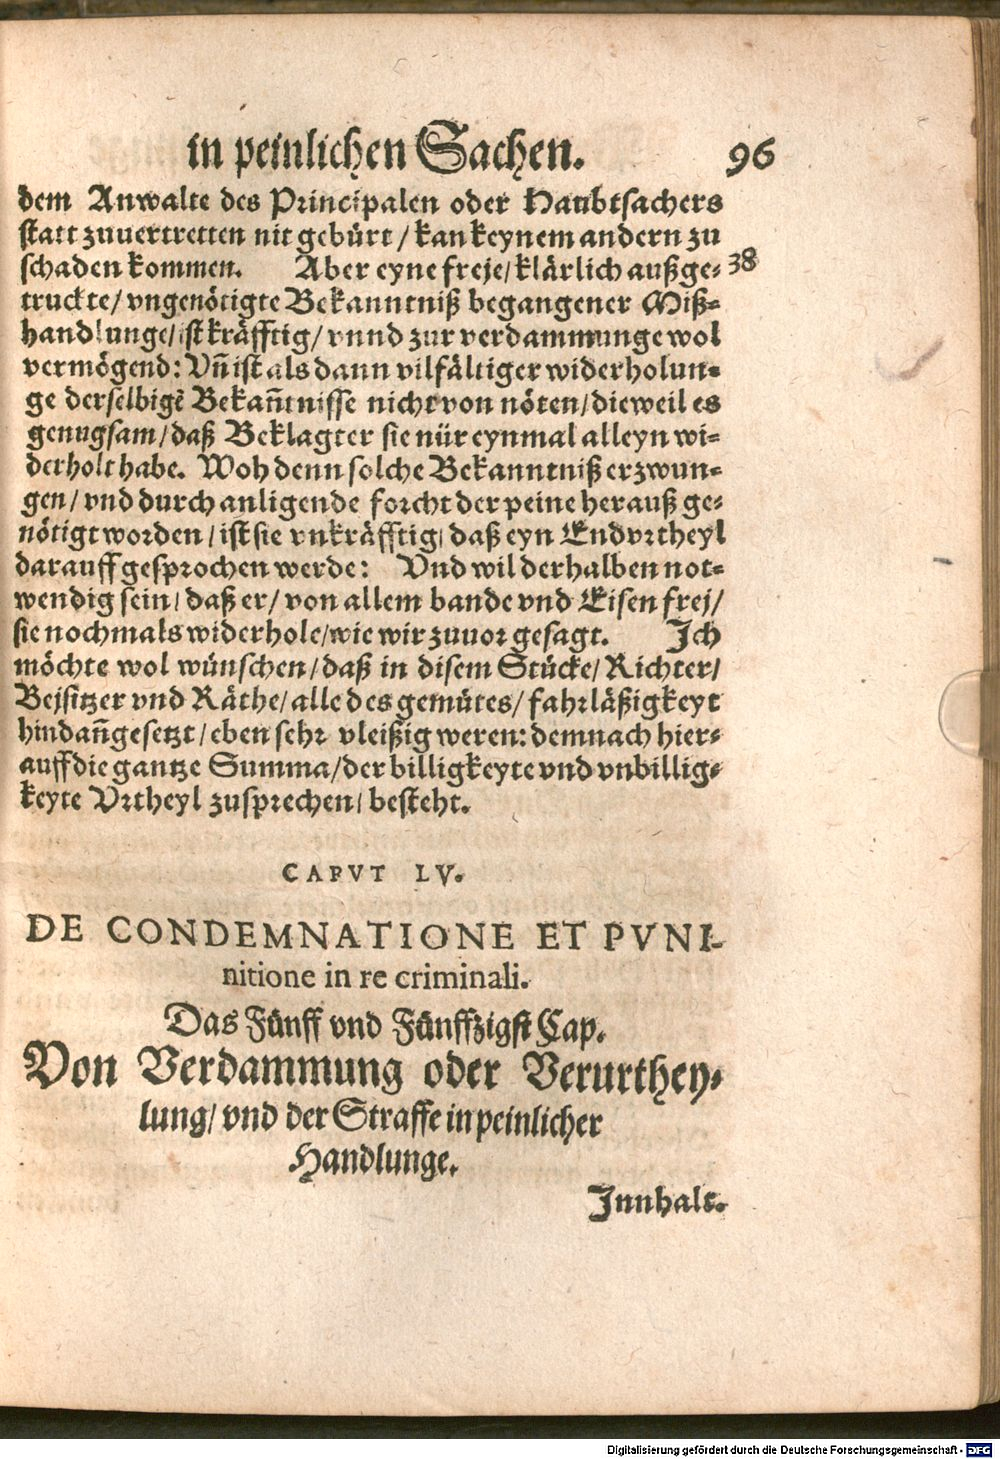 in peinlichen Sachen. 96
dem Anwalte des Principalen oder Haubtsachers
statt zuuertretten nit gebürt / kan keynem andern zu
schaden kommen. Aber eyne freje / klärlich außge= 38
truckte / vngenötigte Bekanntniß begangener Miß=
handlunge / ist kräfftig / vnnd zur verdammunge wol
vermögend: Vñ ist als dann vilfältiger widerholun=
ge derselbigẽ Bekañtnisse nicht von nöten / dieweil es
genugsam / daß Beklagter sie nür eynmal alleyn wi=
derholt habe. Woh denn solche Bekanntniß erzwun=
gen / vnd durch anligende forcht der peine herauß ge=
nötigt worden / ist sie vnkräfftig / daß eyn Endvrtheyl
darauff gesprochen werde: Vnd wil derhalben not=
wendig sein / daß er / von allem bande vnd Eisen frej /
sie nochmals widerhole / wie wir zuuor gesagt. Ich
möchte wol wünschen / daß in disem Stücke / Richter /
Bejsitzer vnd Räthe / alle des gemütes / fahrläßigkeyt
hindañgesetzt / eben sehr vleißig weren: demnach hier=
auff die gantze Summa / der billigkeyte vnd vnbillig=
keyte Vrtheyl zusprechen / besteht.
CAPVT LV.
DE CONDEMNATIONE ET PVNI-
nitione in re criminali.
Das Fünff vnd Fünffzigst Cap.
Von Verdammung oder Verurthey=
lung / vnd der Straffe in peinlicher
Handlunge.
Innhalt.
Digitalisierung gefördert durch die Deutsche Forschungsgemeinschaft - DFG